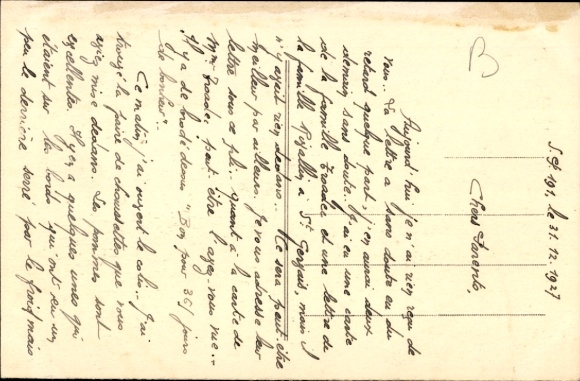 B
S.P. 191. le 31.12.1927
Chers Parents,
Aujourd'hui je n'ai rien reçu de
vous. La lettre a sans doute eu du
retard quelque part, j'en aurai deux
demain sans doute. J'ai eu une carte
de la famille et une lettre de
la famille à St Gervais, mais il
n'y avait rien dedans. Ce sera peut être
meilleur par ailleurs. Je vous adresse leur
lettre sous ce pli. quant à la carte de
Mme peut être l'avez-vous vue..
Il y a de brodé dessus "Bon pour 365 jours
de bonheur".
Ce matin, j'ai ouvert le colis. J'ai
trouvé la paire de chaussettes que vous
aviez mise dedans. Les pommes sont
excellentes. Il y en a quelques unes qui
étaient sur les bords qui ont eu un
peu le derrière serré par le froid mais